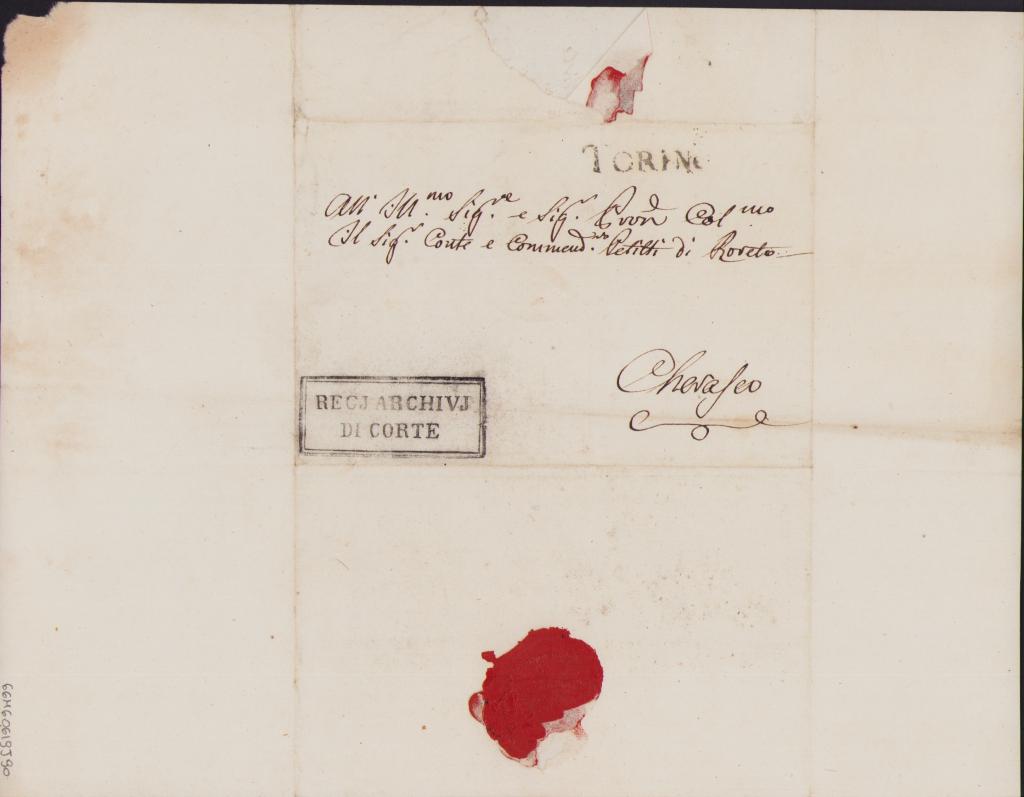 TORINO
All' Ill.mo Sig.re e Sig.r Pron Col.mo
Il Sig.r Conte e Commend.re Petitti di Roreto
Cherasco
REGJ ARCHIVJ
DI CORTE